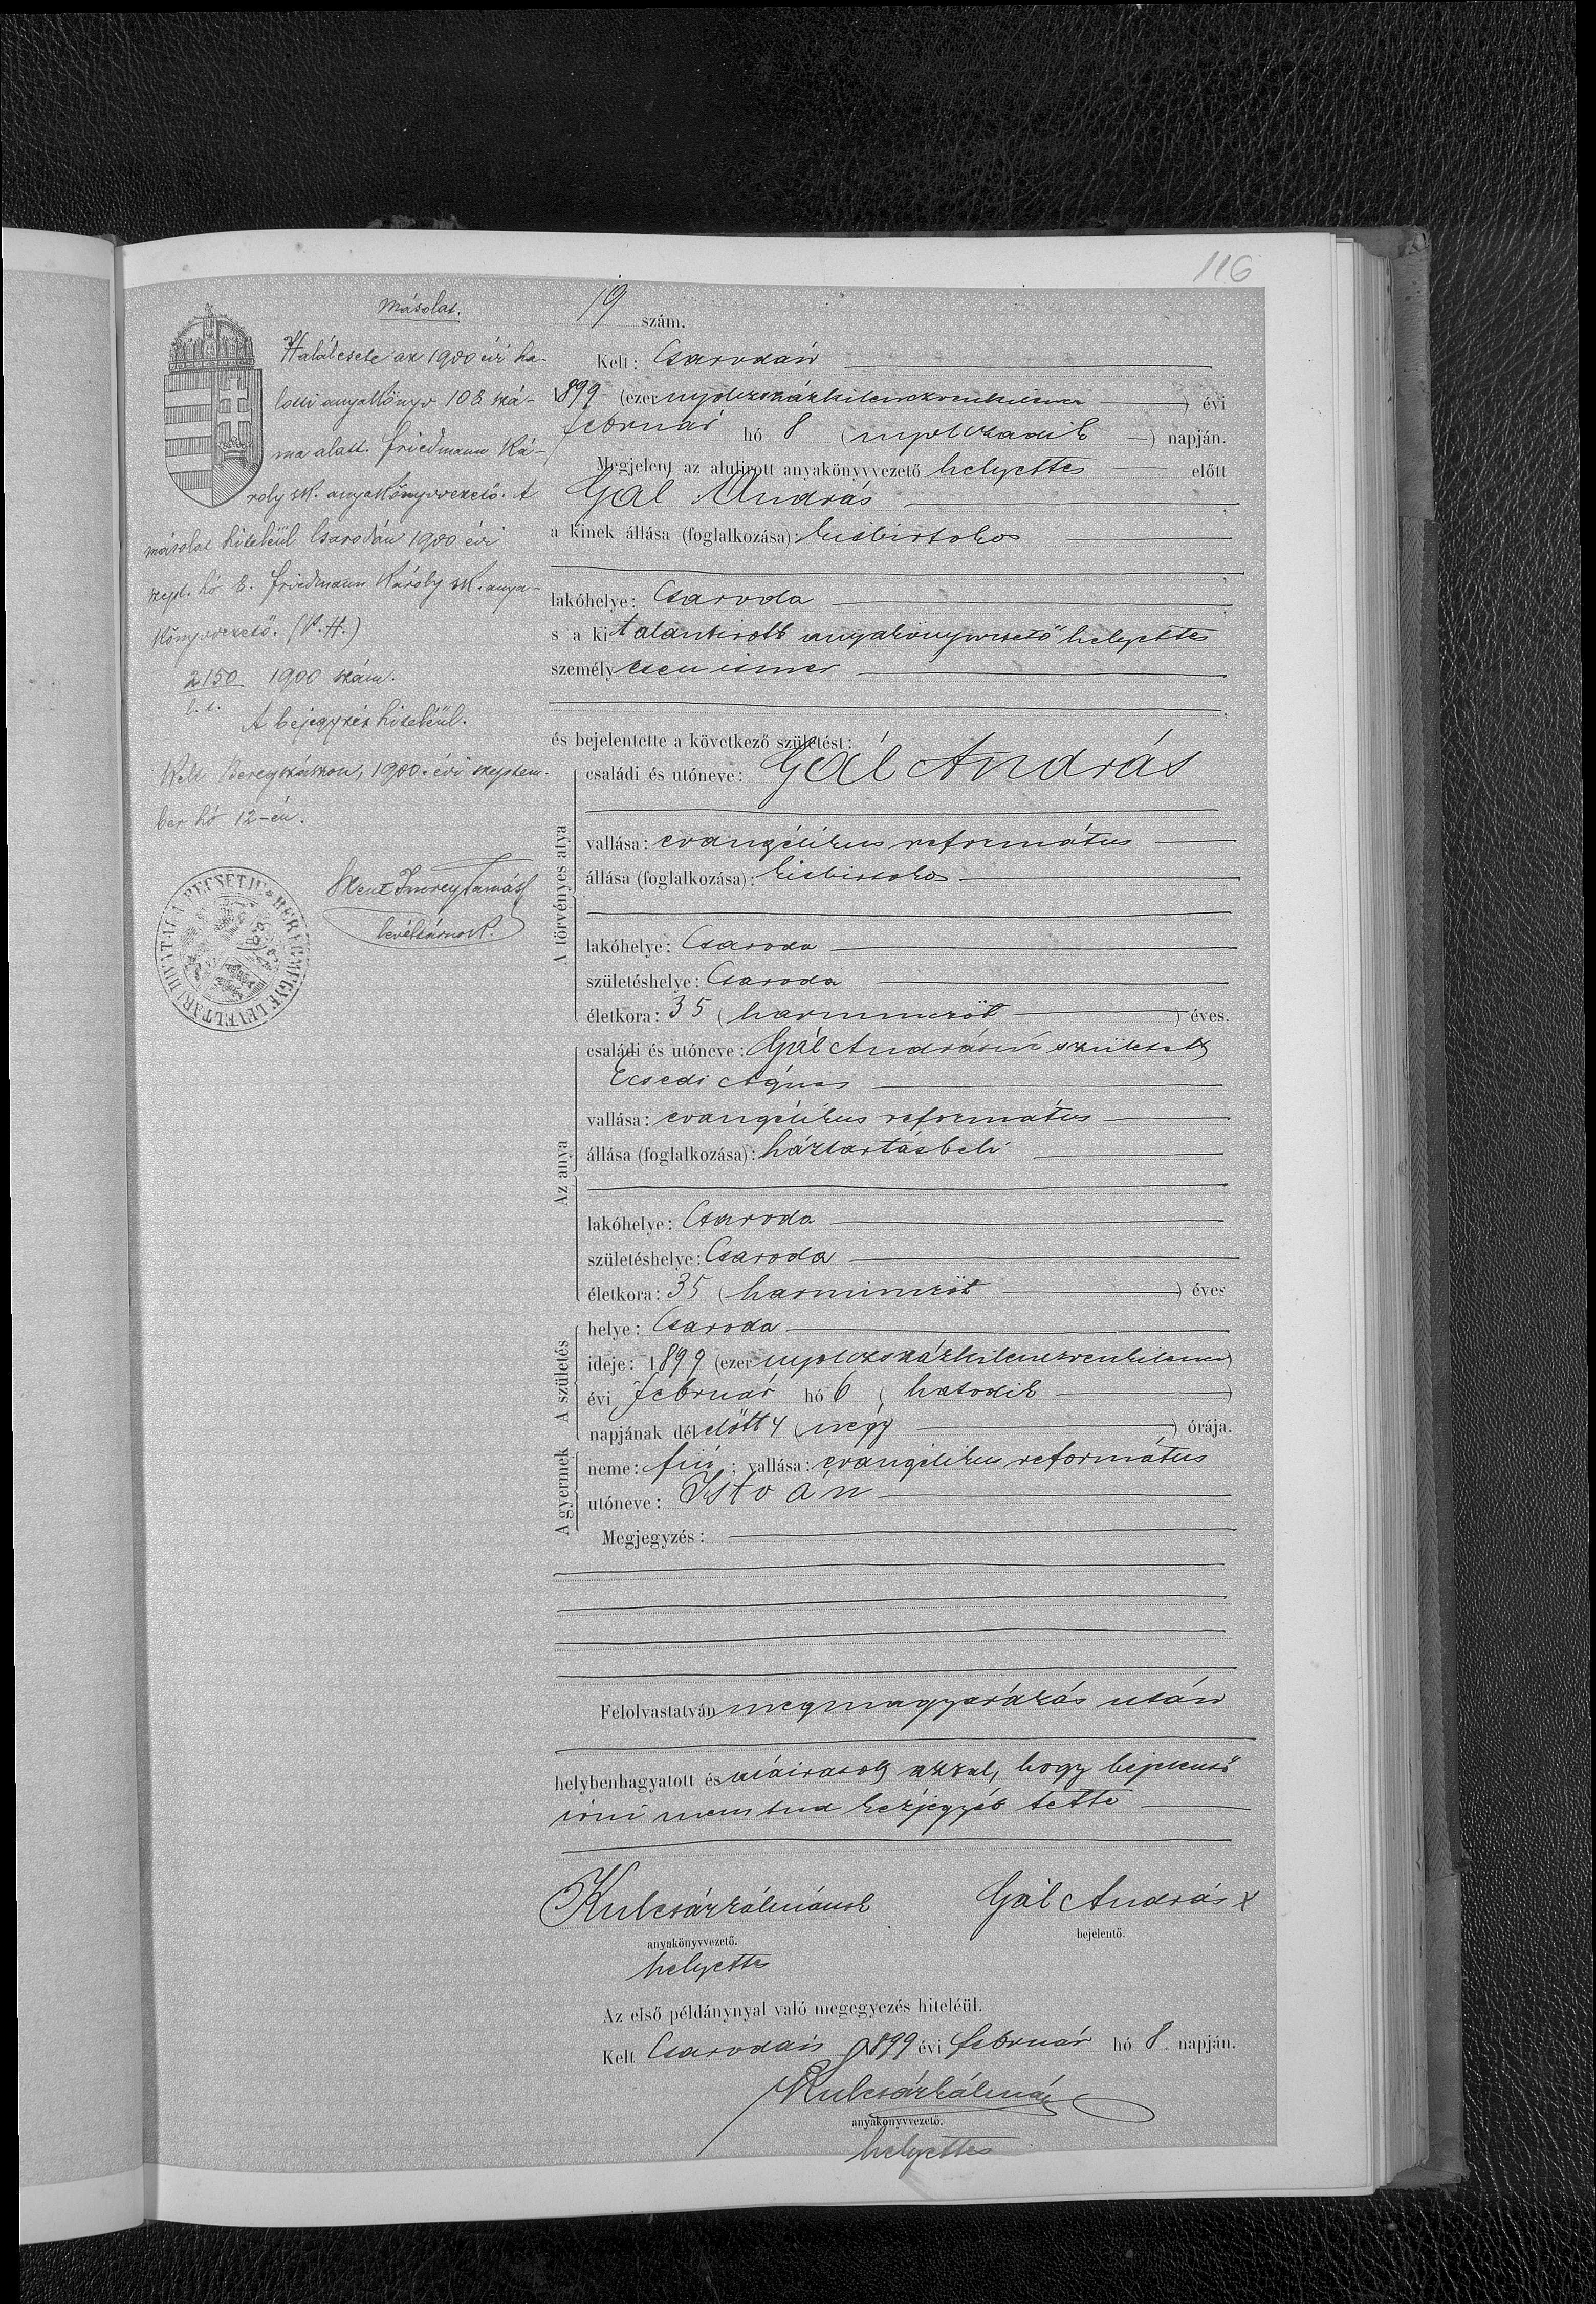 116
Másolat.
Halálesete az 1900 évi ha-
lotti anyakönyv 108 szá-
ma alatt. Friedmann Ká-
roly sk. anyakönyvvezető. A
másolat hiteléül Csarodán 1900 évi
szept. hó 8. Friedmann Károly sk. anya-
könyvvezető. (P.H.)
2150 1900 szám.
A bejegyzés hiteléül.
Kelt Beregszászon, 1900. évi septem-
ber hó 12-én.
Szent Imrey Tamás
levéltárnok.
19 szám.
Kelt: Csarodán
1899 (ezer nyolczszázkilenczvenkilencz ) évi
február hó 8 (nyolczadik ) napján.
Megjelent az alulirott anyakönyvvezető helyettes előtt
Gál András
a kinek állása (foglalkozása): kisbirtokos
lakóhelye: Csaroda
s a kit alantirott anyakönyvvezető helyettes
személyesen ismer
és bejelentette a következő születést:
A törvényes atya
családi és utóneve: Gál András
vallása: evangélikus református
állása (foglalkozása): kisbirtokos
lakóhelye: Csaroda
születéshelye: Csaroda
életkora: 35 (harminczöt ) éves.
Az anya
családi és utóneve: Gál Andrásné született
Ecsedi Ágnes
vallása: evangélikus református
állása (foglalkozása): háztartásbeli
lakóhelye: Csaroda
születéshelye: Csaroda
életkora: 35 (harminczöt ) éves
A születés
helye: Csaroda
ideje: 1899 (ezer nyolczszázkilenczvenkilencz)
évi február hó 6 (hatodik )
napjának délelőtt 4 (négy ) órája.
A gyermek
neme: fiú ; vallása: evangélikus református
utóneve: István
Megjegyzés:
Felolvastatván megmagyarázás után
helybenhagyatott és aláiratott azzal, hogy bejelentő
irni nem tud kézjegyét tette
Kulcsár Kálmán sk Gál András x
anyakönyvvezető. bejelentő.
helyettes
Az első példánynyal való megegyezés hiteléül.
Kelt Csarodán 1899 évi február hó 8 napján.
Kulcsár Kálmán
anyakönyvvezető.
helyettes